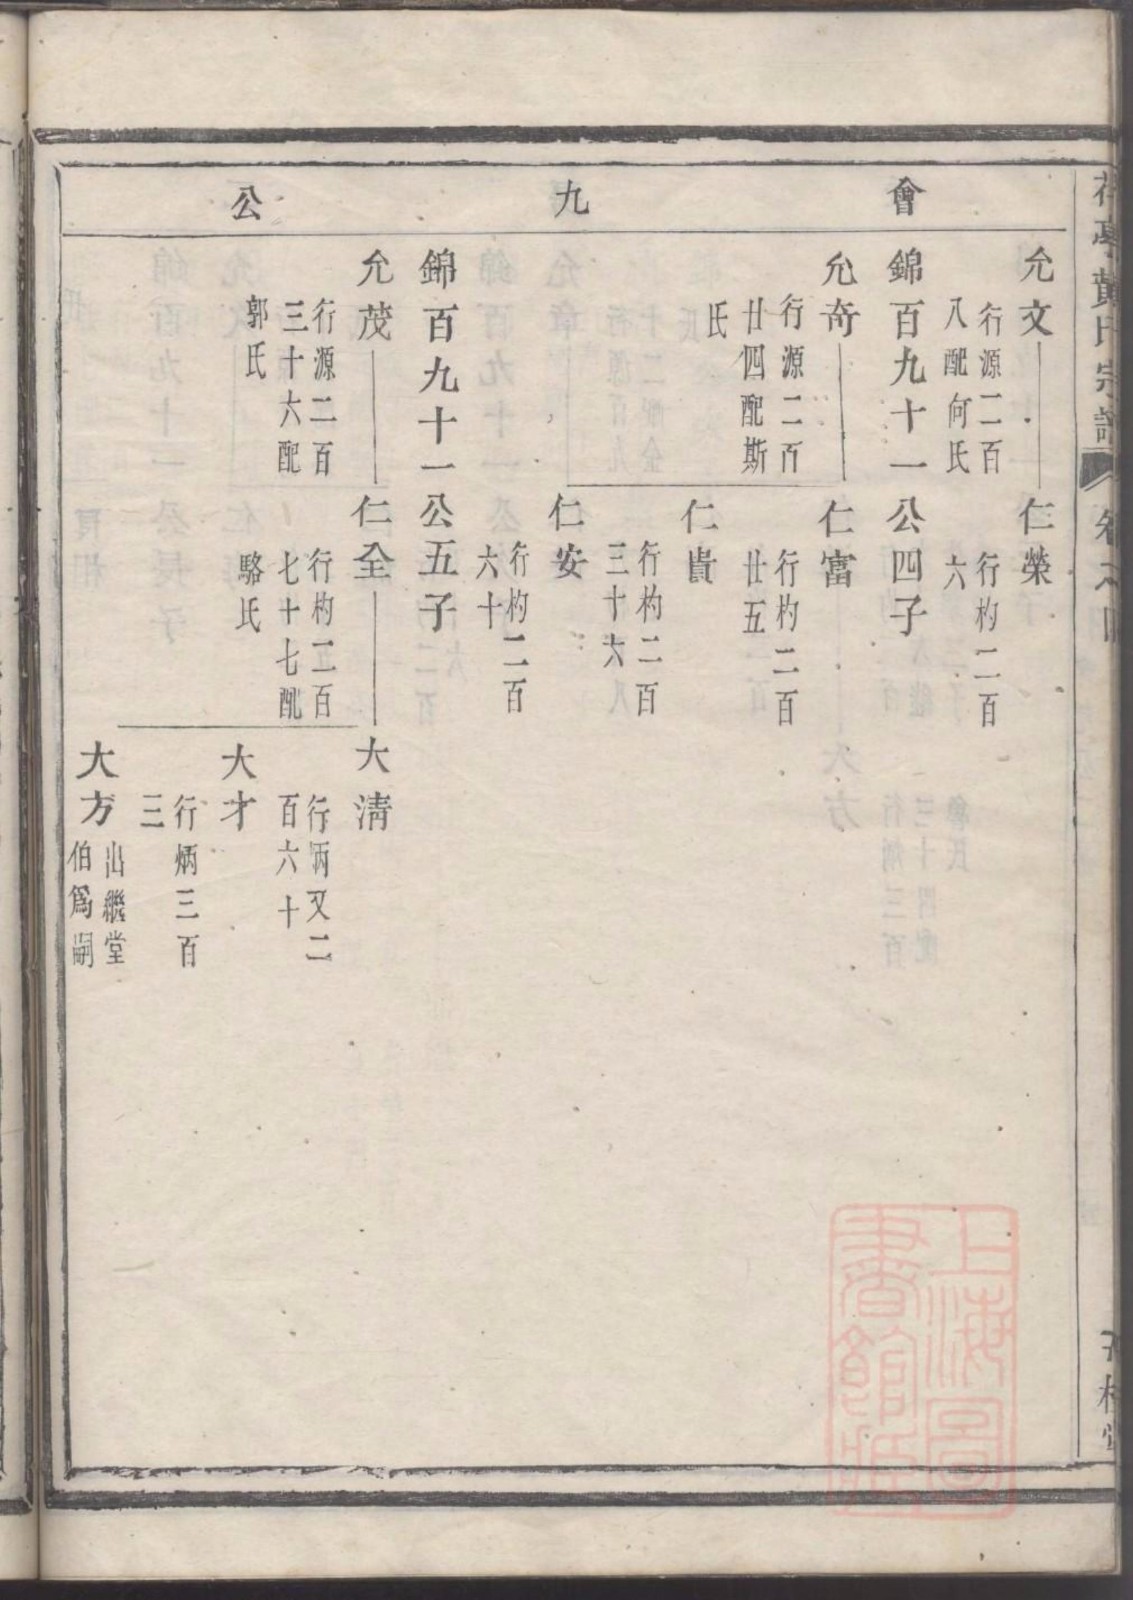 會九公
允文
行源二百
八配何氏
仁榮
行杓二百
六
錦百九十一公四子
允奇
行源二百
廿四配斯
氏
仁富
行杓二百
廿五
仁貴
行杓二百
三十六
仁安
行杓二百
六十
錦百九十一公五子
允茂
行源二百
三十六配
郭氏
仁全
行杓二百
七十七配
駱氏
大清
行炳又二
百六十
大才
行炳三百
三
大方
出繼堂
伯爲嗣
上海圖
書館藏